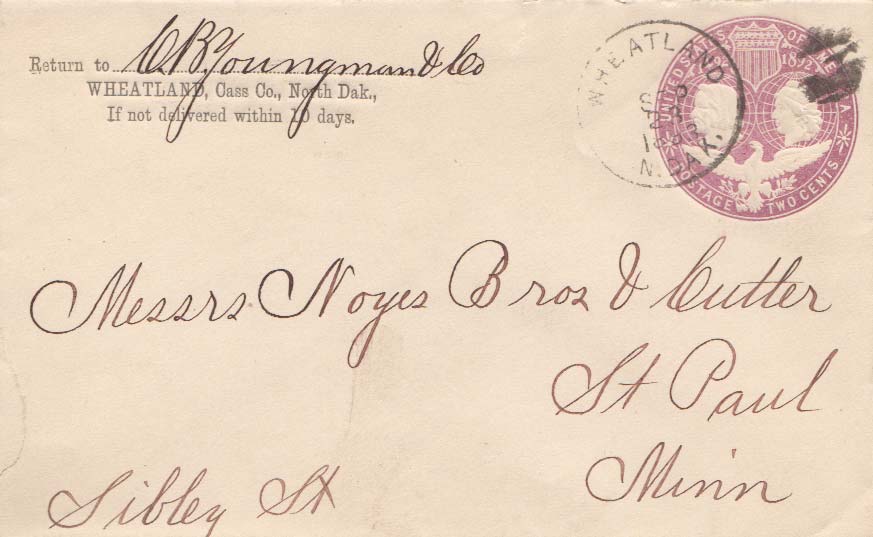 Return to C.B. Youngman & Co
WHEATLAND, Cass Co., North Dak.,
If not delivered within 10 days.
WHEATLAND
N. DAK.
UNITED STATES OF AMERICA
1892
POSTAGE TWO CENTS
Messrs Noyes Bros & Cutter
St Paul
Minn
Sibley St